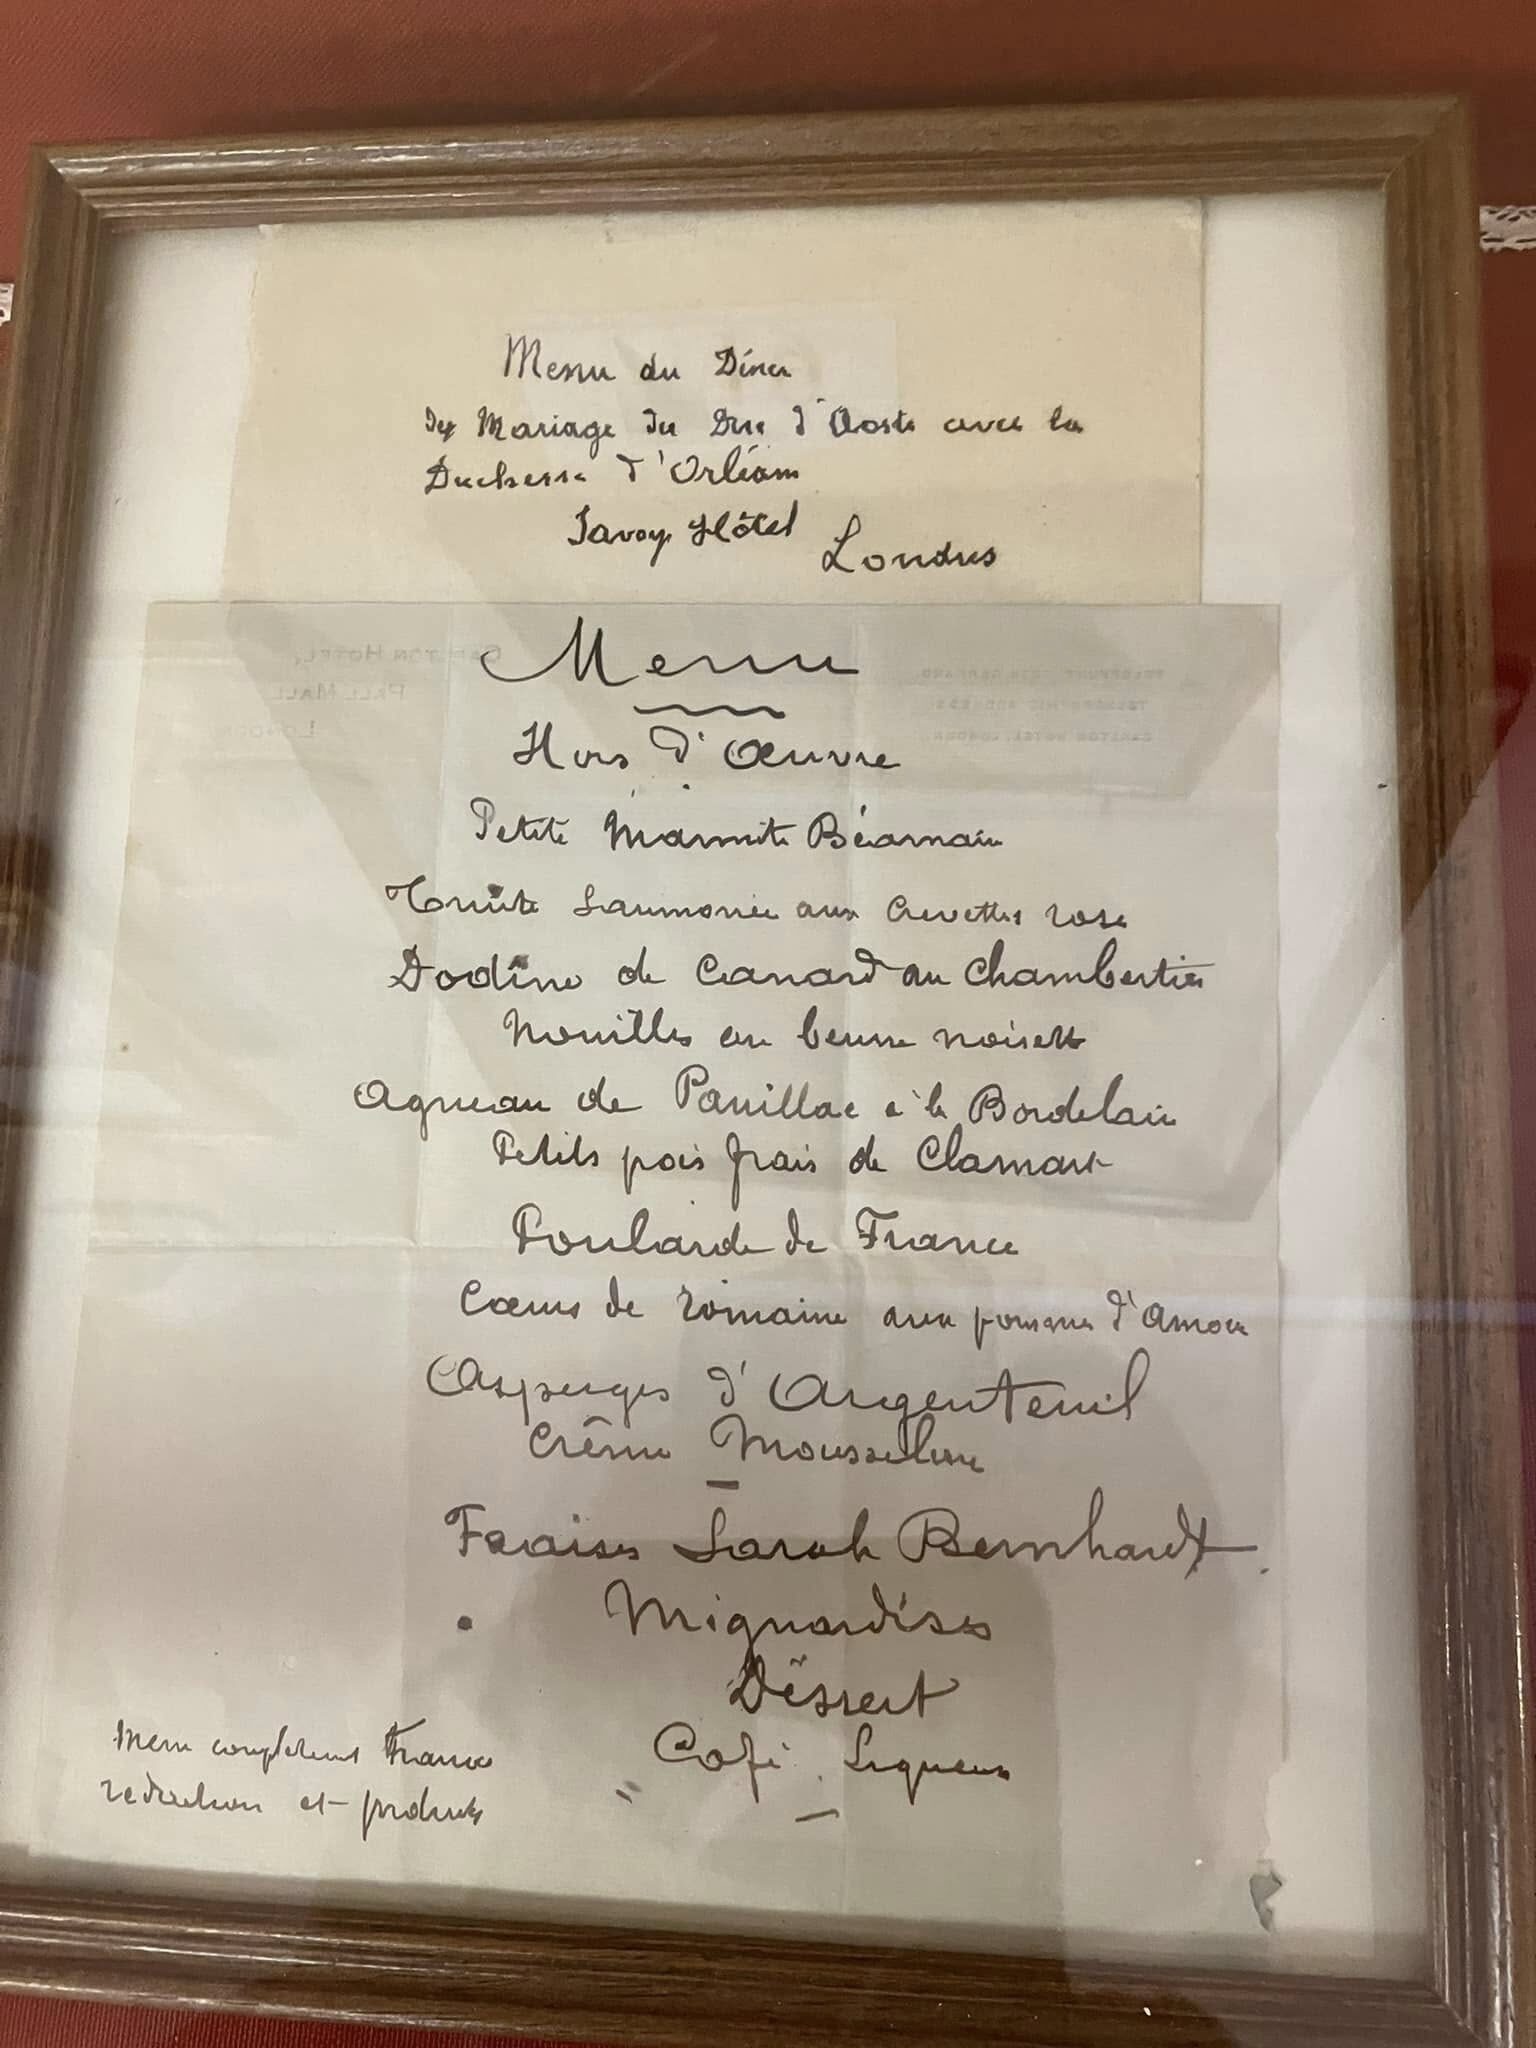 Menu du Diner
du Mariage du Duc d'Aoste avec la
Duchesse d'Orléans
Savoy Hôtel Londres
CARLTON HOTEL,
PALL MALL
LONDON
Menu
Hors d'Œuvre
Petite Marmite Béarnaise
Truite Saumonée aux Crevettes rose
Dodine de Canard au Chambertin
Nouilles au beurre noisette
Agneau de Pauillac à la Bordelaise
Petits pois frais de Clamart
Poularde de France
Cœurs de romaine aux pommes d'Amour
Asperges d'Argenteuil
Crême Mousseline
Fraises Sarah Bernhardt
Mignardises
Déssert
Café . Liqueurs
Menu complètement France
rédaction et produits